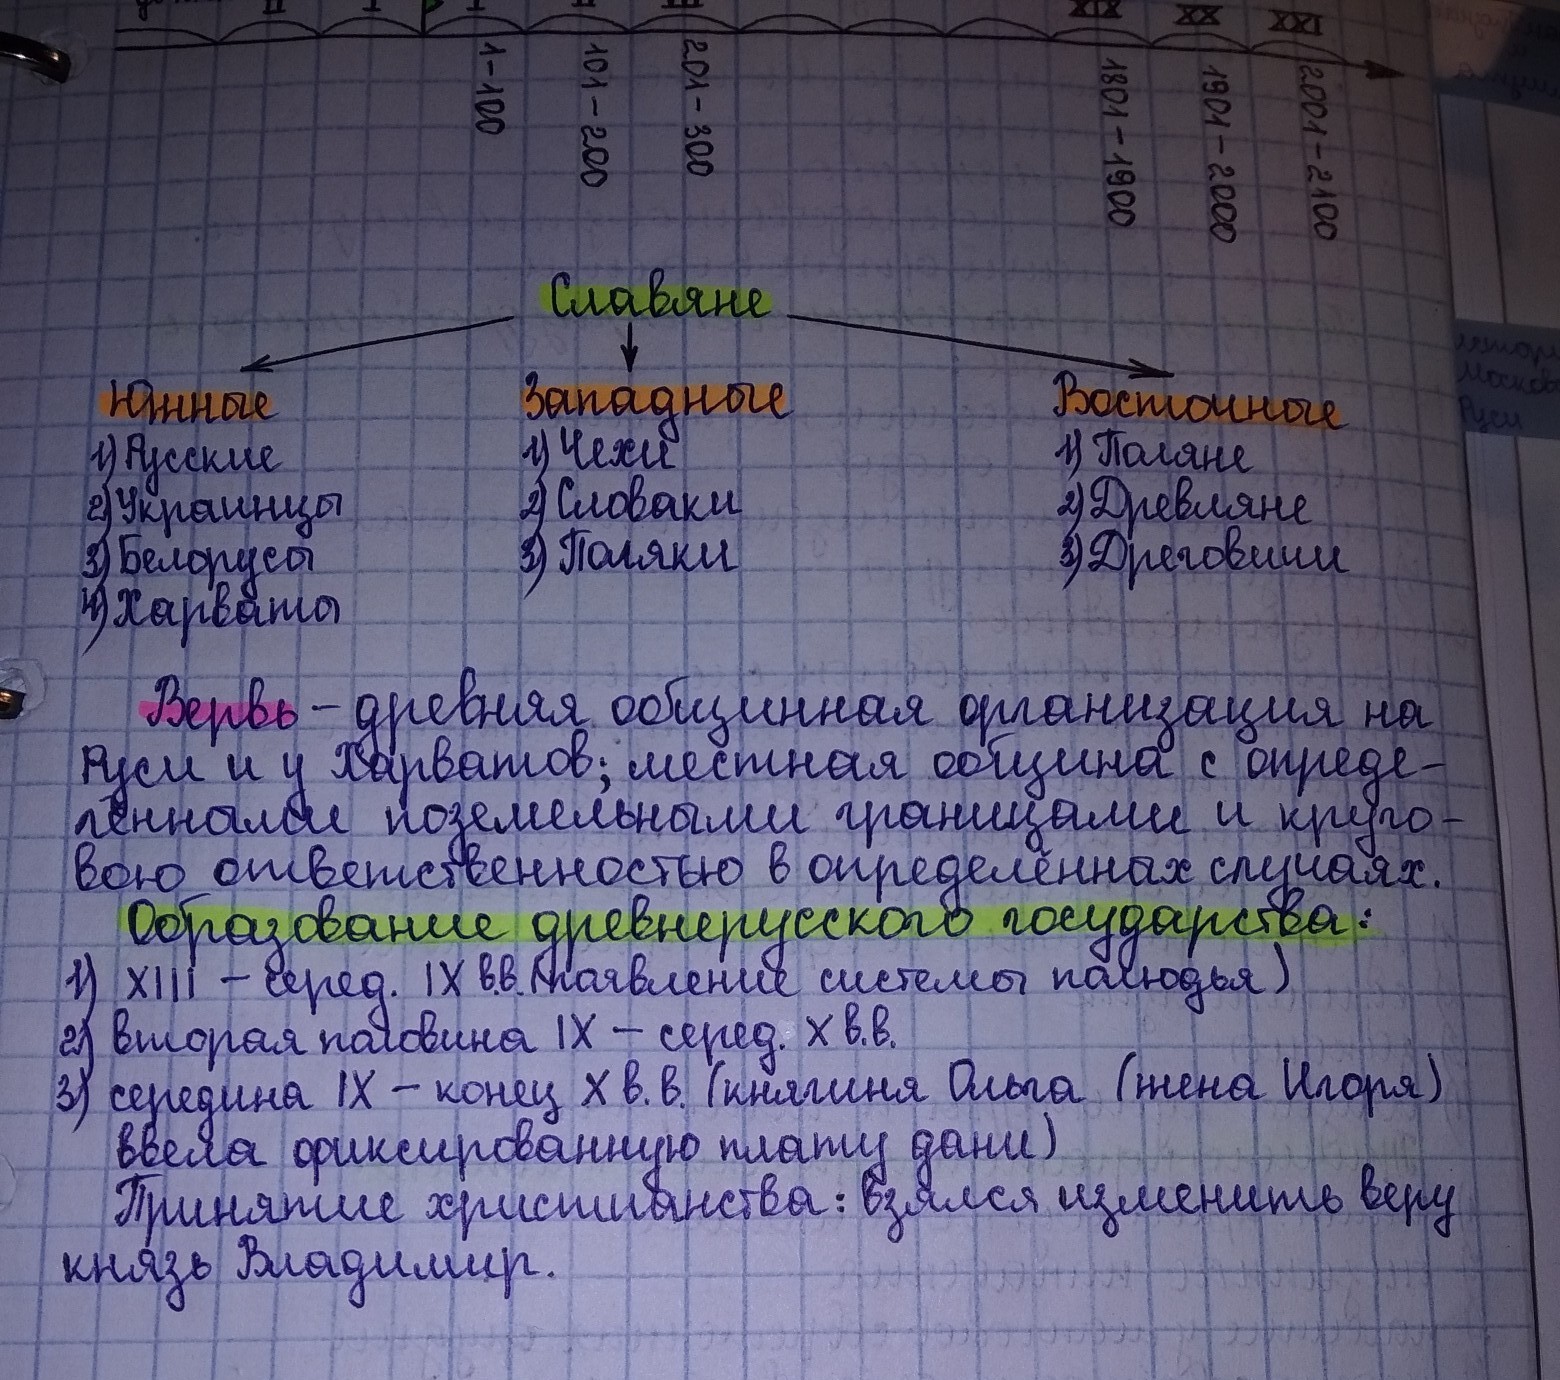 II I I II III XIX XX XXI
1-100 101-200 201-300 1801-1900 1901-2000 2001-2100
Славяне
Южные Западные Восточные
1) Русские 1) Чехи 1) Поляне
2) Украинцы 2) Словаки 2) Древляне
3) Белорусы 3) Поляки 3) Дреговичи
4) Харваты
Вервь – древняя общинная организация на
Руси и у Харватов; местная община с опреде-
лёнными поземельными границами и круго-
вою ответственностью в определённых случаях.
Образование древнерусского государства:
1) XIII – серед. IX в.в. (появление системы полюдья)
2) вторая половина IX – серед. X в.в.
3) середина IX – конец X в.в. (княгиня Ольга (жена Игоря)
ввела фиксированную плату дани)
Принятие христианства: взялся изменить веру
князь Владимир.
Руси